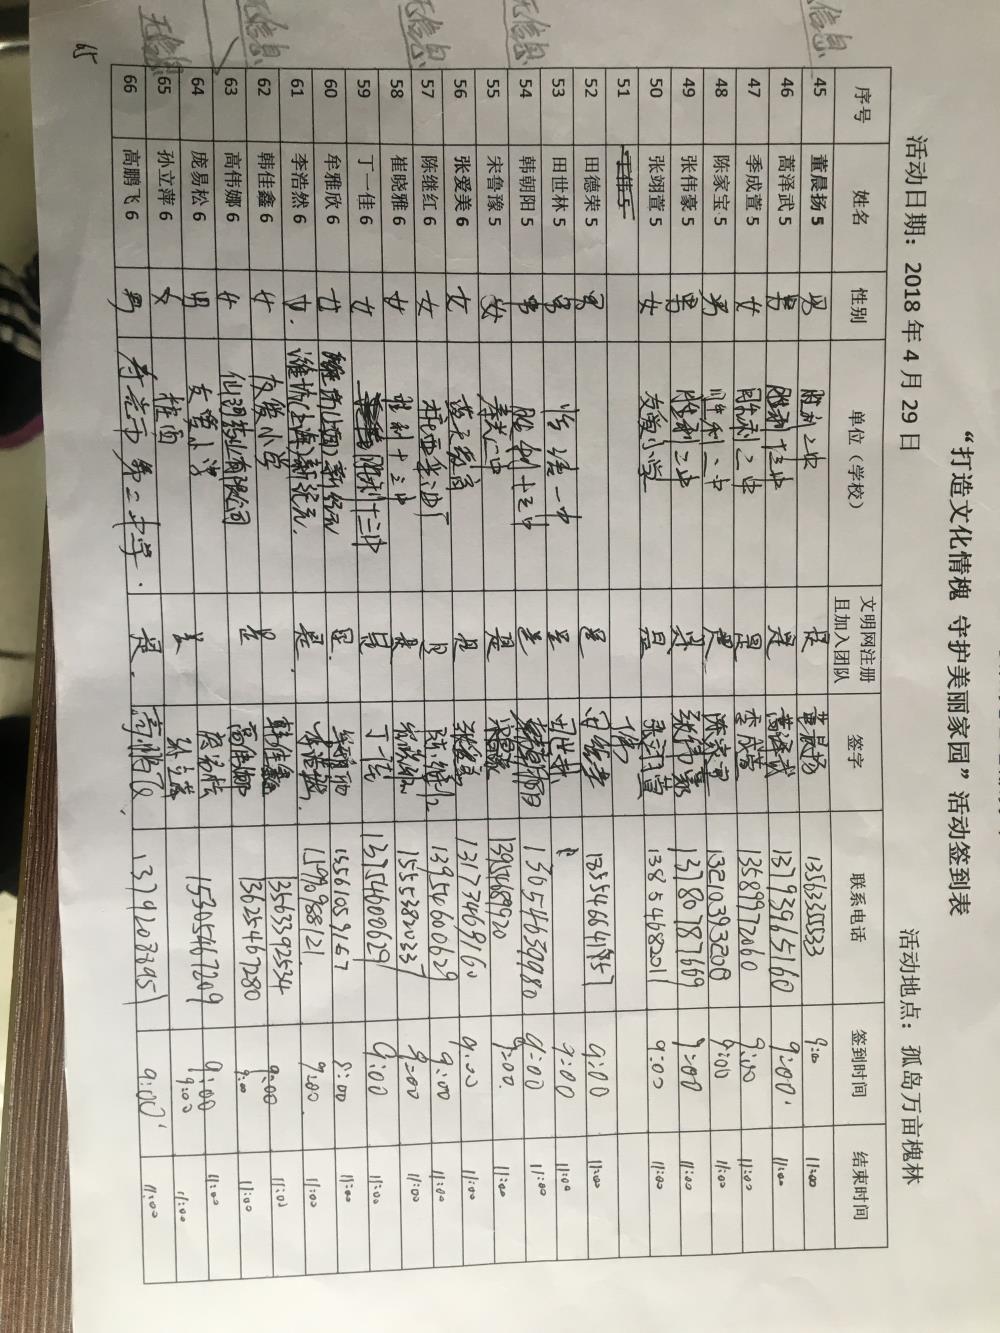 "打造文化情槐 守护美丽家园"活动签到表
活动日期：2018 年 4 月 29 日 活动地点：孤岛万亩槐林
序号 姓名 性别 单位（学校） 文明网注册且加入团队 签字 联系电话 签到时间 结束时间
45 董晨扬 5 男 胜利二中 是 董晨扬 9:00 11:00
46 蒿泽武 5 男 是 蒿泽武 13793965160 9:00 11:00
47 季成萱 5 女 胜利二中 是 季成萱 13589972060 9:00 11:00
48 陈家宝 5 男 胜利二中 是 陈家宝 13210393208 9:00 11:00
49 张伟豪 5 男 胜利二中 是 张伟豪 13780787669 9:00 11:00
50 张翊萱 5 女 友爱小学 是 张翊萱 13854682011 9:00 11:00
51 王伟 5
52 田德荣 5 男 是 田德荣 9:00 11:00
53 田世林 5 男 一中 是 田世林 9:00 11:00
54 韩朝阳 5 男 胜利十三中 是 韩朝阳 13654639980 9:00 11:00
55 宋鲁豫 5 女 一中 是 宋鲁豫 9:00 11:00
56 张爱美 6 女 是 张爱美 13173469160 9:00 11:00
57 陈继红 6 女 是 陈继红 13954600629 9:00 11:00
58 崔晓雅 6 女 胜利十三中 是 崔晓雅 15553803337 9:00 11:00
59 丁一佳 6 女 胜利十三中 是 丁一佳 13754600629 9:00 11:00
60 牟雅欣 6 女 是 牟雅欣 15561059167 8:00 11:00
61 李浩然 6 是 李浩然 9:00 11:00
62 韩佳鑫 6 女 友爱小学 是 韩佳鑫 13563392534 9:00 11:00
63 高伟娜 6 女 仙河药业有限公司 高伟娜 13625467280 9:00 11:00
64 庞易松 6 男 友爱小学 庞易松 15305467209 9:00 11:00
65 孙立萍 6 女 是 孙立萍 9:00 11:00
66 高鹏飞 6 男 寿光市第二中学. 是. 高鹏飞 9:00 11:00
无信息
无信息
无信息
无信息
无信息
65